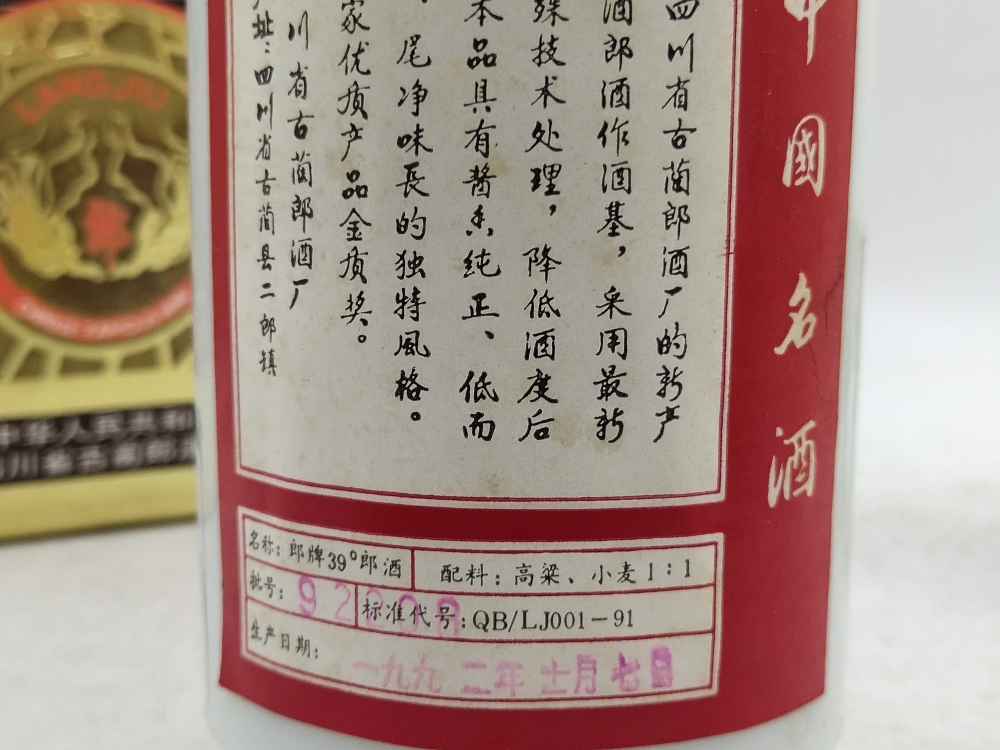 中國名酒
四川省古蔺郎酒厂的新产
酒郎酒作酒基，采用最新
殊技术处理，降低酒度后
本品具有酱香纯正、低而
尾净味長的独特風格。
家优质产品金质奖。
川省古蔺郎酒厂
址：四川省古蔺县二郎镇
名称：郎牌39°郎酒
配料：高粱、小麦1：1
批号：
标准代号：QB/LJ001－91
生产日期：
一九九二年十一月七日
LANGJIU
郎
中华人民共和
川省古蔺郎酒